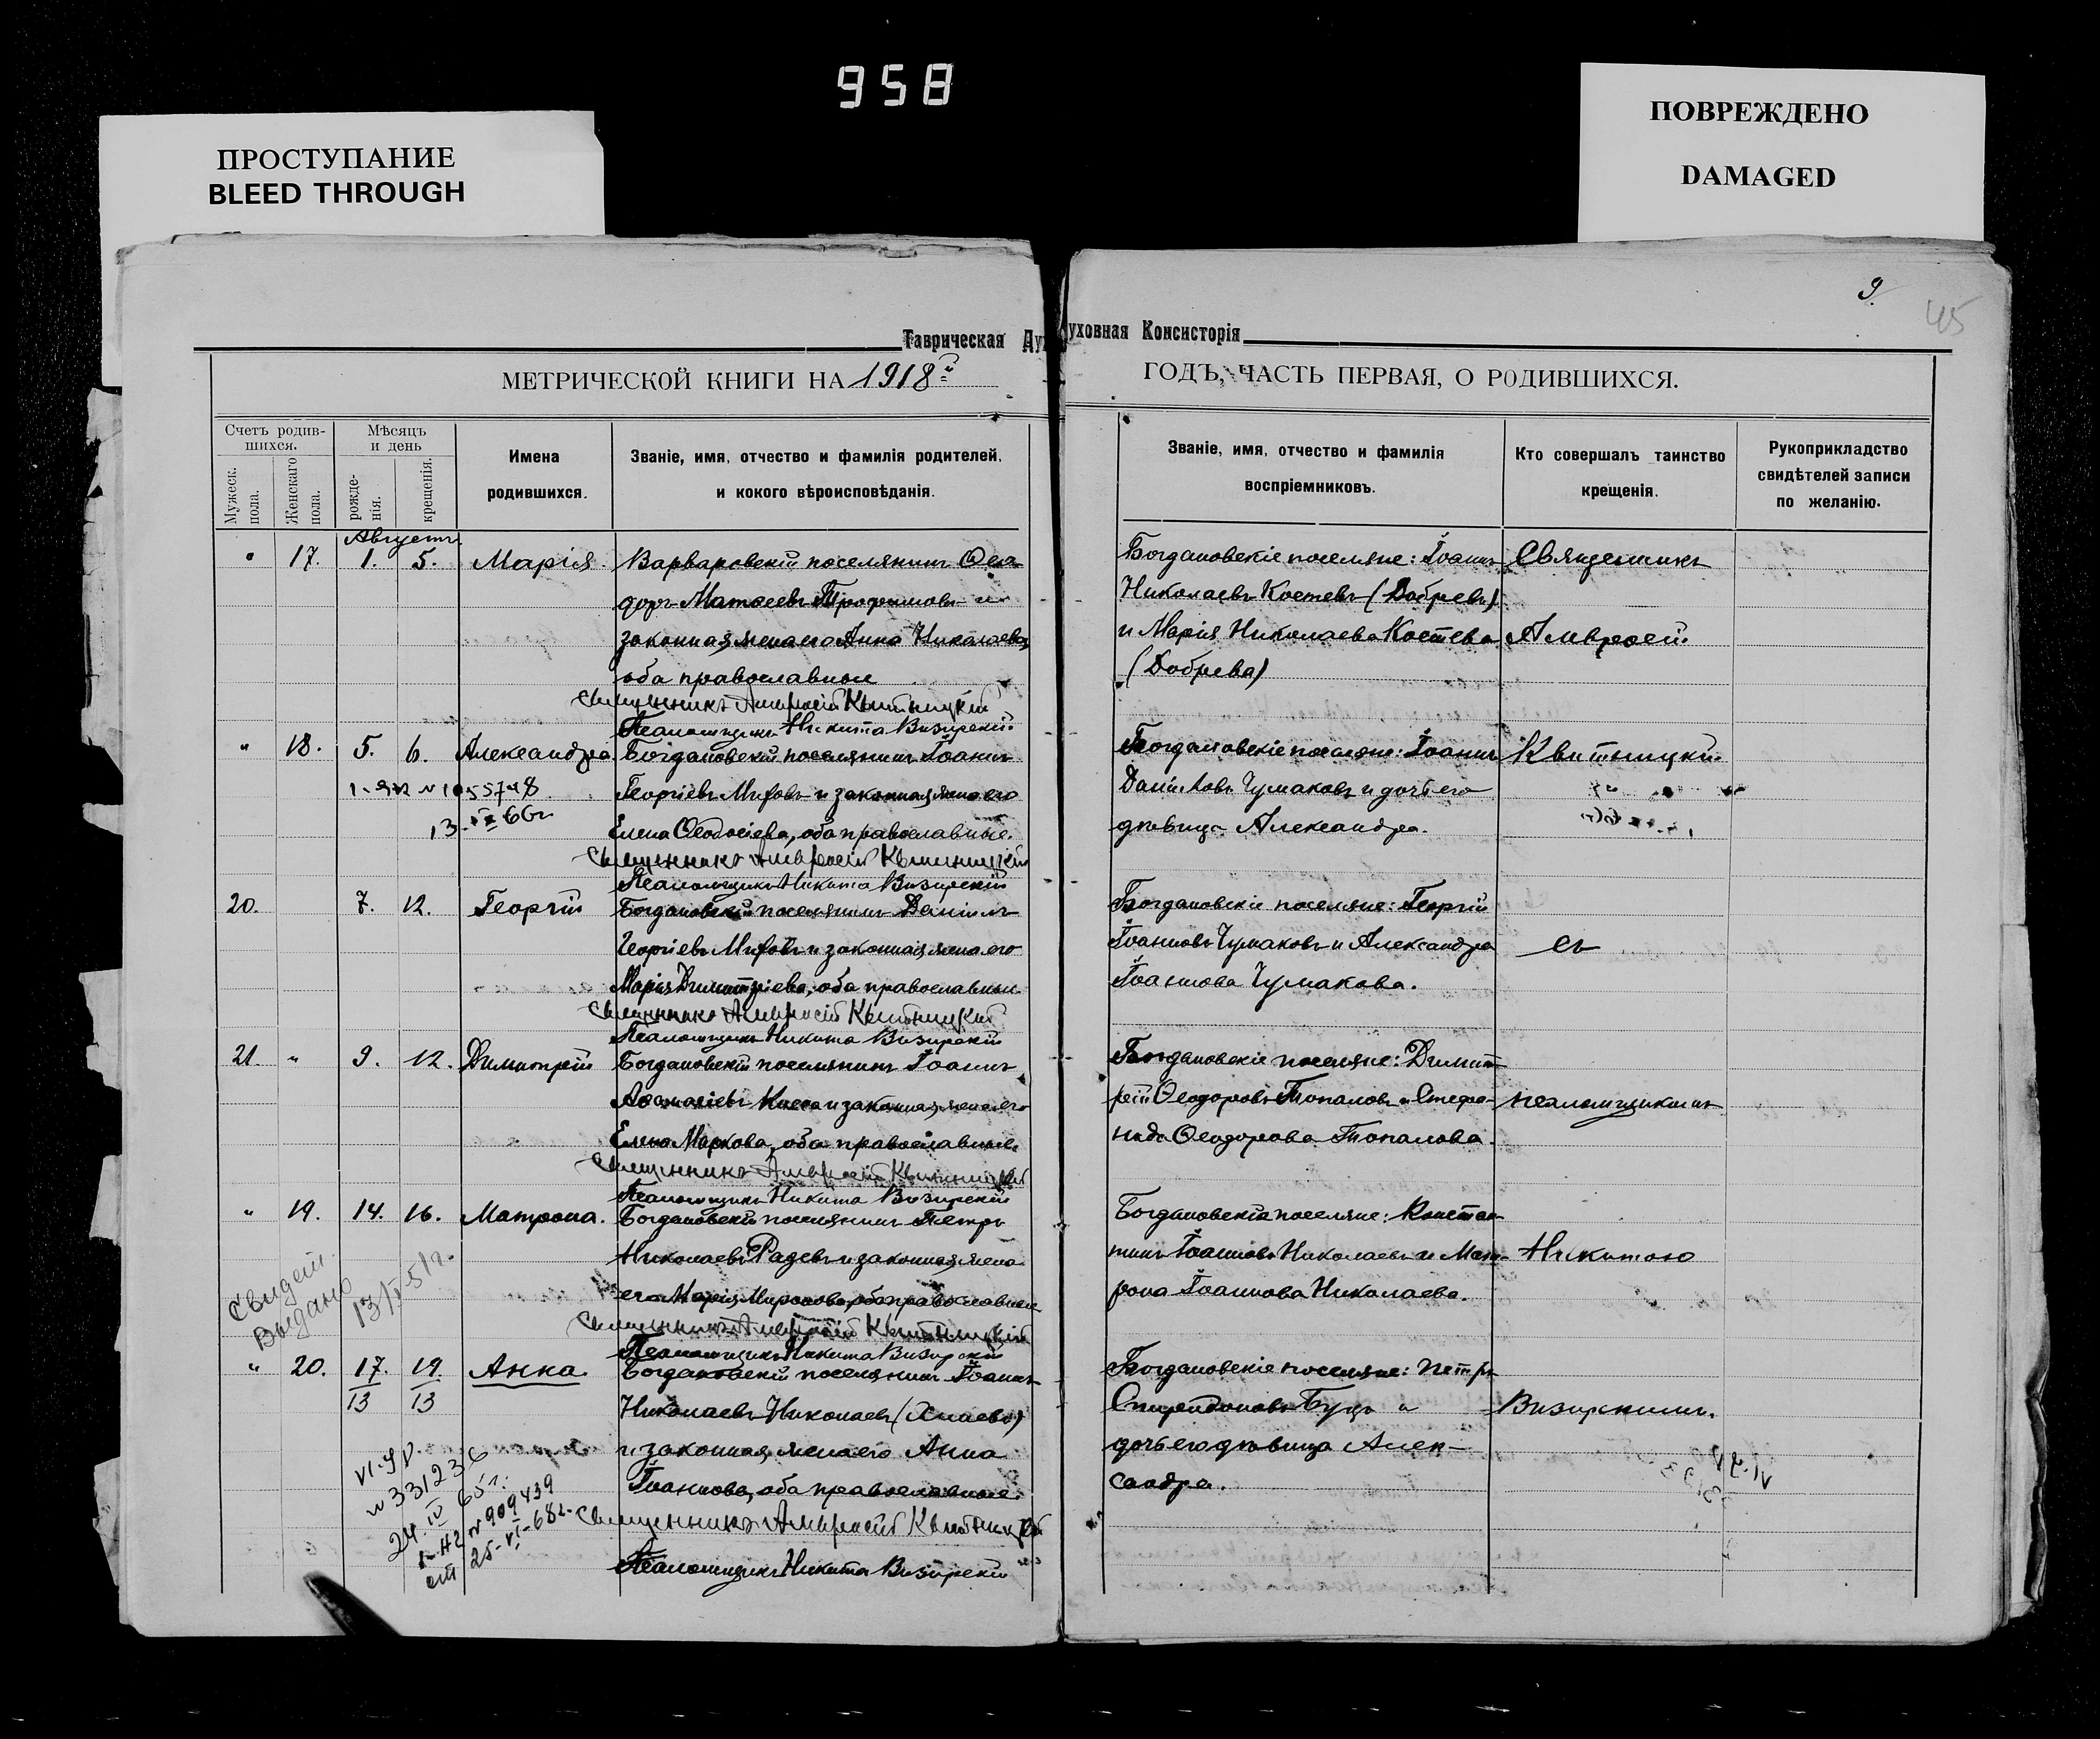 958
ПРОСТУПАНИЕ
BLEED THROUGH
ПОВРЕЖДЕНО
DAMAGED
9.
45
Таврическая Духовная Консисторія
МЕТРИЧЕСКОЙ КНИГИ НА 1918й ГОДЪ, ЧАСТЬ ПЕРВАЯ, О РОДИВШИХСЯ.
Счетъ родив-
шихся.
Мужеск.
пола.
Женскаго
пола.
Мѣсяцъ
и день
рожде-
нія.
крещенія.
Имена
родившихся.
Званіе, имя, отчество и фамилія родителей,
и кокого вѣроисповѣданія.
Званіе, имя, отчество и фамилія
воспріемниковъ.
Кто совершалъ таинство
крещенія.
Рукоприкладство
свидѣтелей записи
по желанію.
Августъ.
" 17. 1. 5. Марія
Варваровскій поселянинъ Ѳео-
доръ Матѳеевъ Трофимовъ и
законная жена его Анна Николаева,
оба православные
Священникъ Амвросій Квитницкій
Псаломщикъ Никита Визирскій
Богдановскіе поселяне: Іоаннъ
Николаевъ Костевъ (Добревъ)
и Марія Николаева Костева
(Добрева)
Священникъ
Амвросій
" 18. 5. 6. Александра.
13 IX 66г
Богдановскій поселянинъ Іоаннъ
Георгіевъ Мифовъ и законная жена его
Елена Ѳеодосіева, оба православные.
Священникъ Амвросій Квитницкій
Псаломщикъ Никита Визирскій
Богдановскіе поселяне: Іоаннъ
Даніиловъ Чумаковъ и дочь его
дѣвица Александра.
Квитницкій
20. 7. 12. Георгій
Богдановскій поселянинъ Даніилъ
Георгіевъ Мифовъ и законная жена его
Марія Димитріева, оба православные
Священникъ Амвросій Квитницкій
Псаломщикъ Никита Визирскій
Богдановскіе поселяне: Георгій
Іоанновъ Чумаковъ и Александра
Іоаннова Чумакова.
съ
21. " 9. 12. Димитрій
Богдановскій поселянинъ Іоаннъ
Аѳанасіевъ и законная жена его
Елена Маркова, оба православные.
Священникъ Амвросій Квитницкій
Псаломщикъ Никита Визирскій
Богдановскіе поселяне: Димит-
рій Ѳеодоровъ Топаловъ и Стефа-
нида Ѳеодорова Топалова.
псаломщикомъ
" 19. 14. 16. Матрона.
Свидет.
Выдано 13/I-51г.
Богдановскій поселянинъ Петръ
Николаевъ Радевъ и законная жена
его Марія Миронова, оба православные
Священникъ Амвросій Квитницкій
Псаломщикъ Никита Визирскій
Богдановскіе поселяне: Констан-
тинъ Іоанновъ Николаевъ и Мат-
рона Іоаннова Николаева.
Никитою
" 20. 17. 19. Анна.
13 13
VI-ЯР.
№ 331236
24. IV 65г.
I-АГ № 909439
от 25-VI-68г.
Богдановскій поселянинъ Іоаннъ
Николаевъ Николаевъ
и законная жена его Анна
Іоаннова, оба православные.
Священникъ Амвросій Квитницкій
Псаломщикъ Никита Визирскій
Богдановскіе поселяне: Петръ
Спиридоновъ Буцъ и
дочь его дѣвица Алек-
сандра.
Визирскимъ.